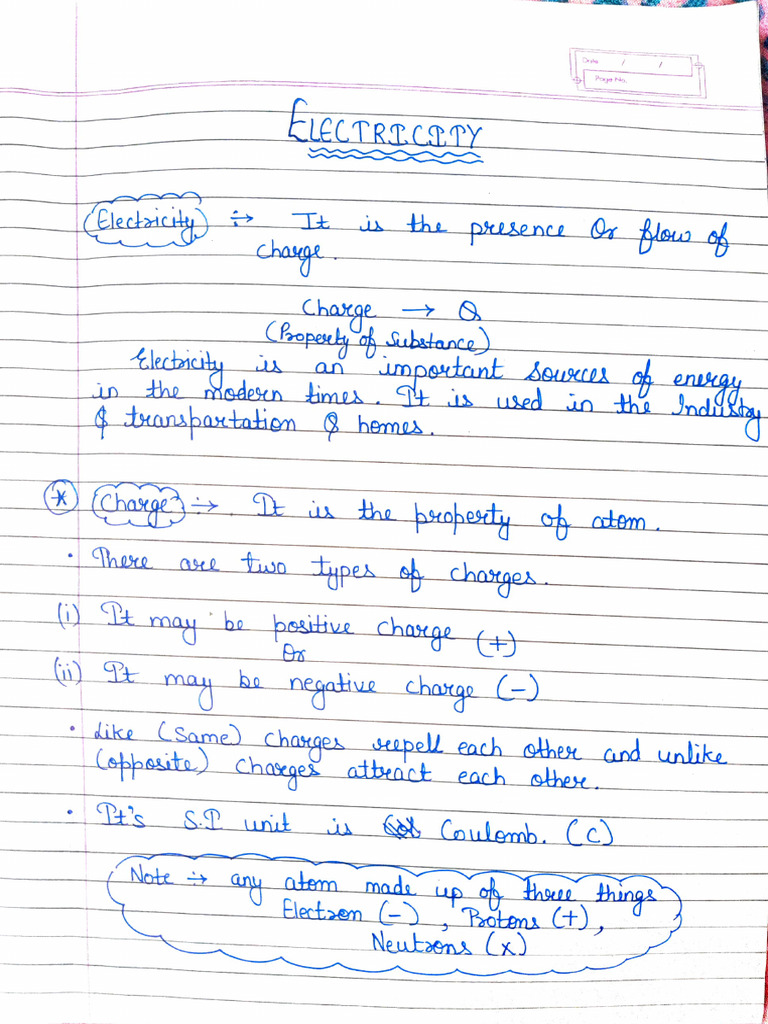 Date / /
Page No.
ELECTRICITY
Electricity ÷→ It is the presence Or flow of
charge.
Charge → Q
(Property of Substance)
Electricity is an important sources of energy
in the modern times. It is used in the Industry
& transpartation & homes.
* Charge ÷→. It is the property of atom.
• There are two types of charges.
(i) It may be positive charge (+)
Or
(ii) It may be negative charge (-)
• Like (Same) charges reepell each other and unlike
(opposite) charges attract each other.
• It's S.I unit is Coulomb. (C)
Note ÷→ any atom made up of three things
Electron (-), Protons (+),
Neutrons (x)